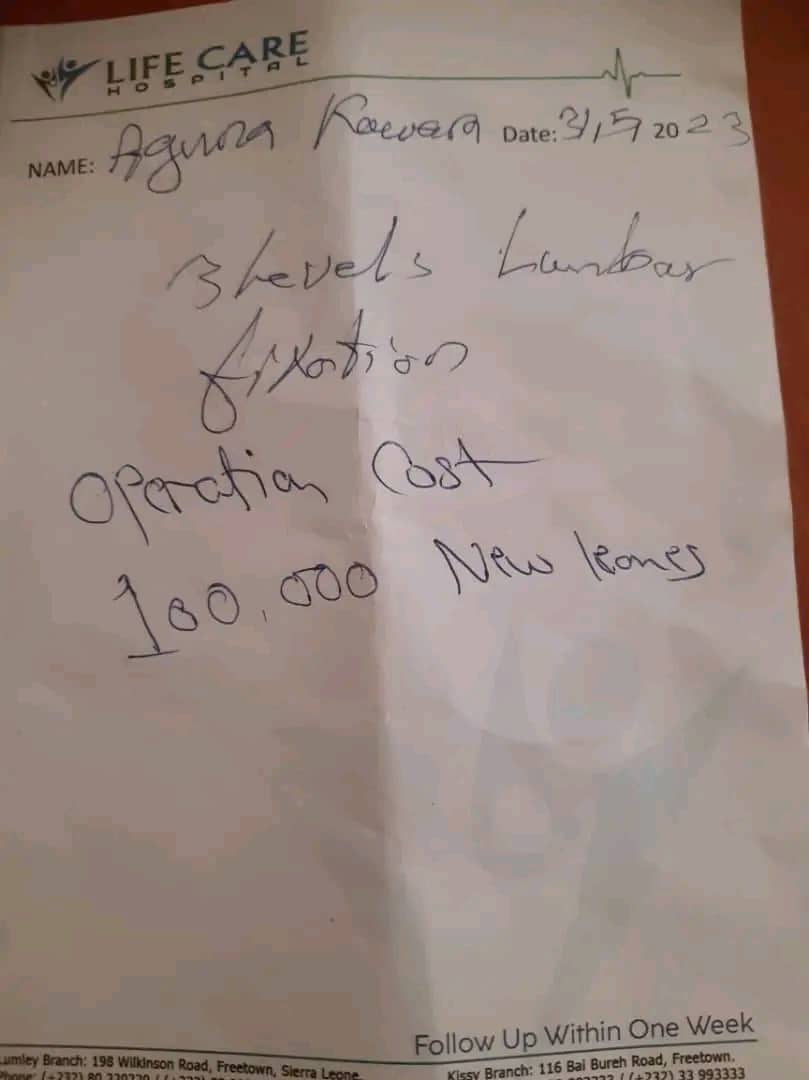 LIFE CARE
HOSPITAL
NAME: Date: 3/5 2023
3 Levels Lumbar
fixation
Operation Cost
100,000 New leones
Follow Up Within One Week
Lumley Branch: 198 Wilkinson Road, Freetown, Sierra Leone.
Kissy Branch: 116 Bai Bureh Road, Freetown.
Phone: (+232) 80 220220 / (+232)
/ (+232) 33 993333